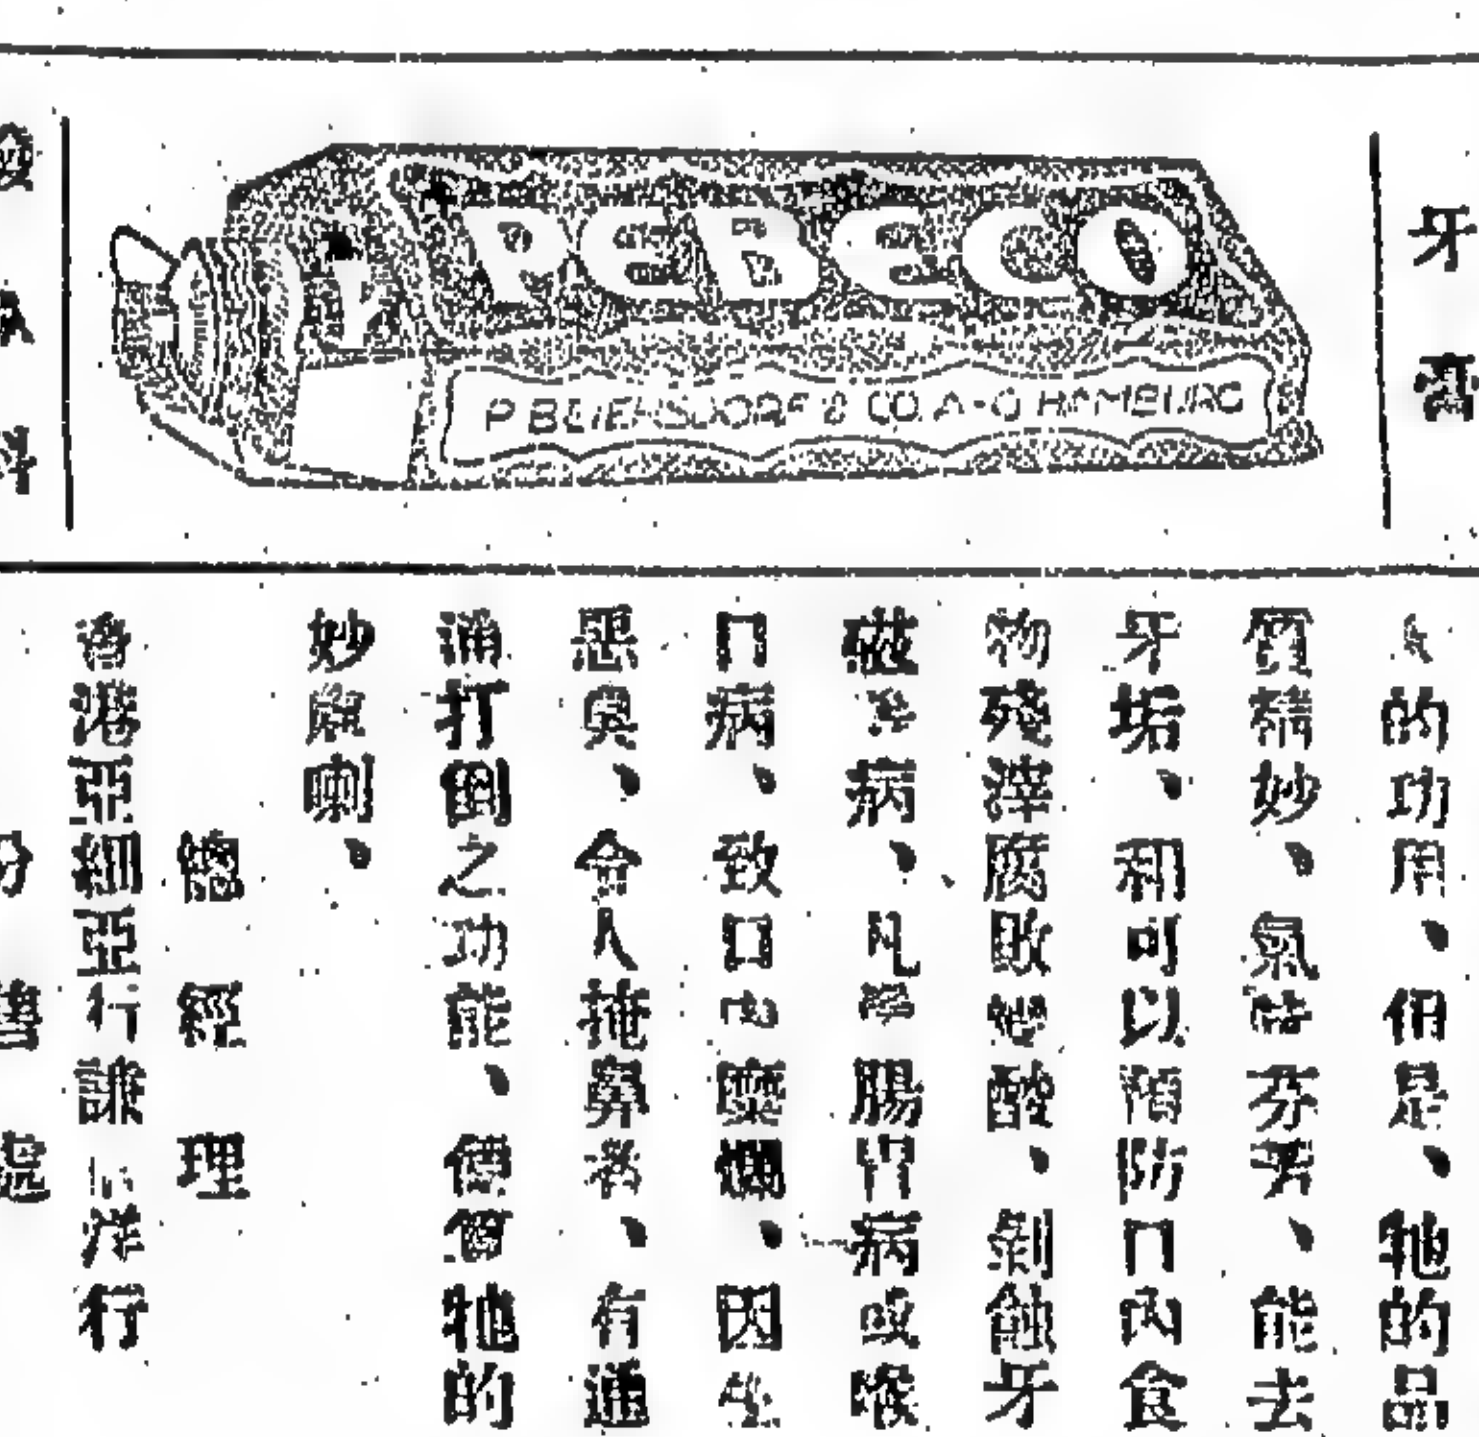 牙膏
PEBECO
P. BEIERSDORF & CO. A-G HAMBURG
的功用、但是、牠的品
質精妙、氣味芬芳、能去
牙垢、和可以預防口內食
物殘滓腐敗變酸、剝蝕牙
磁等病、凡學腸胃病或喉
口病、致口內糜爛、因生
惡臭、令人掩鼻者、有通
通打倒之功能、價值牠的
妙處喇、
總經理
香港亞細亞行謙信洋行
分售處